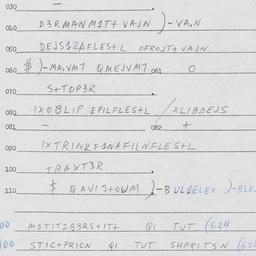 030 —
040 D3RMANM1T+ VAJN )-VA.N
050 DEJS12AFLES+L OFROJT+ VAJN
060 $)-MA.VM7 QMEJVM7 061 O
070 S+TOP3R
080 1XOBLIP EFILFLES+L /XLIBDEJS
081 — 082 +
090 1XTRINKFANAFILNFLES+L
100 TRAXT3R
110 $ QAVIS+OWM )-BULDELEX )-BLE
00 M1TIT1B3RS+1T+ QI TUT (624
00 STIC+PRICN QI TUT SHPRITSN (62